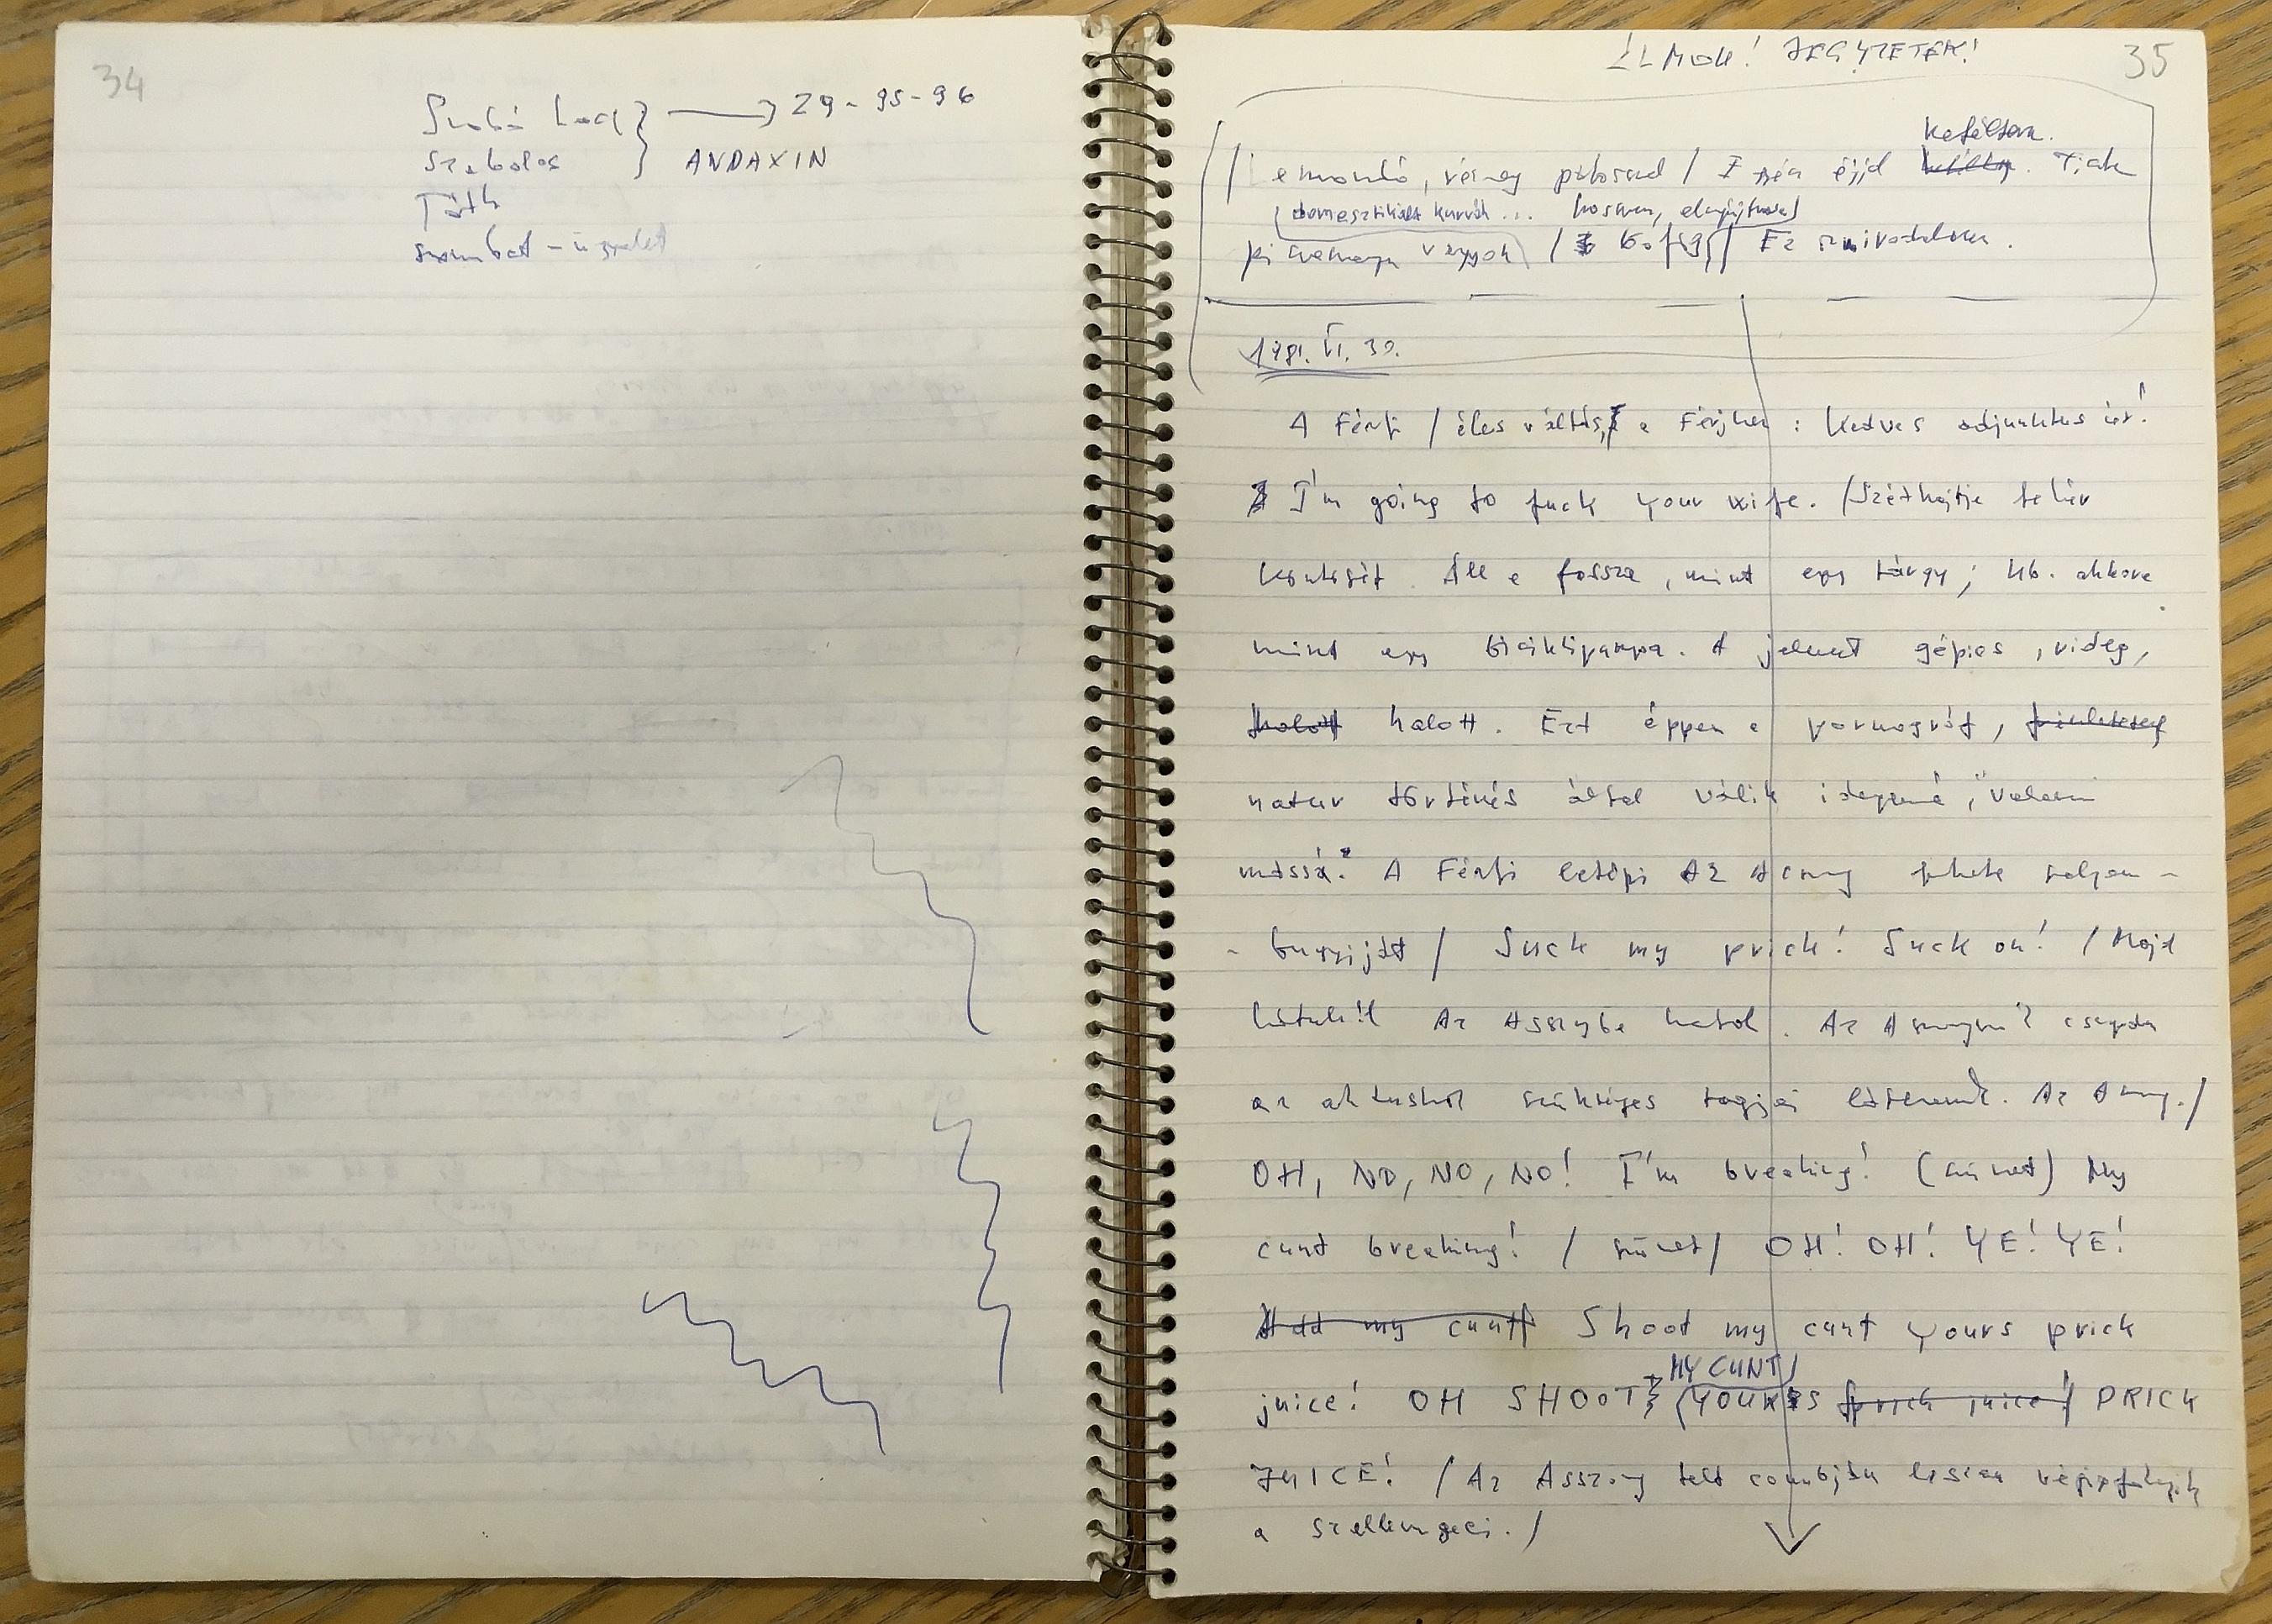 34
Szabó Laci 29-95-96
Szabolcs ANDAXIN
Tóth
szombat - üzenet
ÁLMOK! JEGYZETEK! 35
keféltem.
/ elmondó, pátosszal / I éjjel Tiak
domesztikált kurvák... hosszan,
vagyok / Köfög / Ez
1981. VI. 30.
A Férfi / éles váltás, a Férjhez : Kedves adjunktus úr!
I'm going to fuck your wife. / Széthajtja
köntösét. Áll a fassza, mint egy tárgy; kb. akkora
mint egy biciklipumpa. A jelenet gépies, rideg,
halott halott. Ezt éppen a pornográf,
natur történés által válik idegenné, "valami
mássá." A Férfi letépi Az Asszony fekete selyem-
- bugyiját / Suck my prick! Suck on! / Majd
hátulról Az Asszonyba hatol. Az Asszonynak csupán
az aktushoz szükséges tagjai léteznek. Az Asszony. /
OH, NO, NO, NO! I'm breaking! (szünet) My
cunt breaking! / szünet / OH! OH! YE! YE!
Add my cunt Shoot my cunt yours prick
MY CUNT
juice! OH SHOOT YOURS prick juice! PRICK
JUICE! / Az Asszony telt combján lassan végigfolyik
a szellemgeci. /